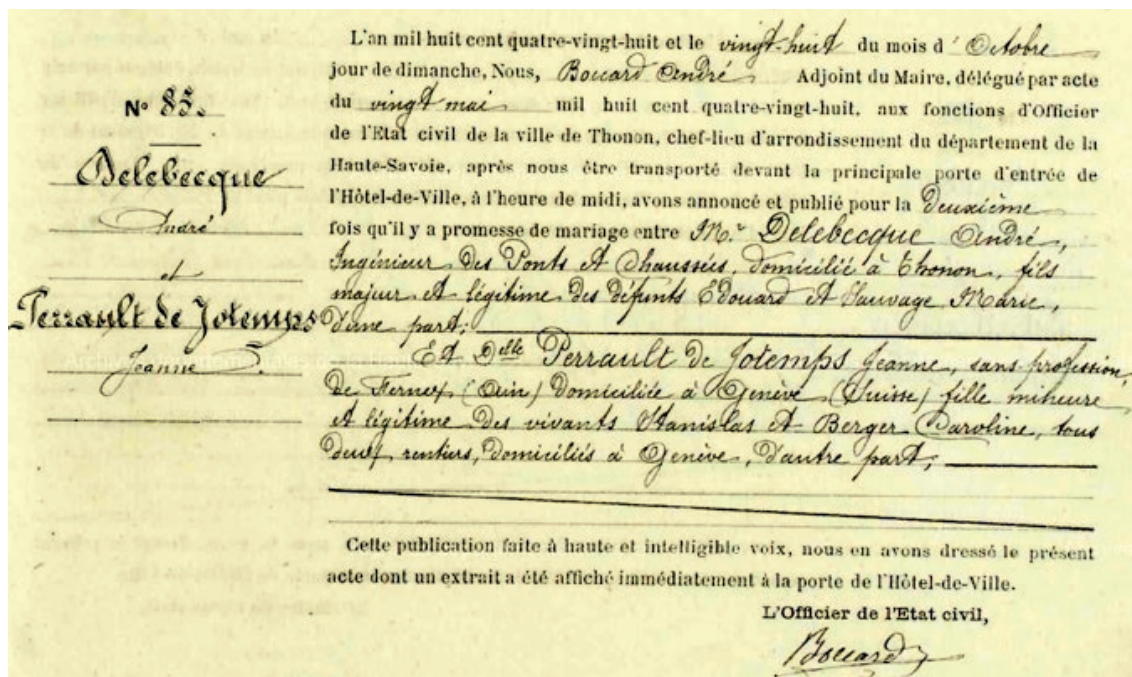 N° 85.
Delebecque
André
et
Perrault de Jotemps
Jeanne.
L'an mil huit cent quatre-vingt-huit et le vingt-huit du mois d'Octobre
jour de dimanche, Nous, Boccard André Adjoint du Maire, délégué par acte
du vingt mai mil huit cent quatre-vingt-huit, aux fonctions d'Officier
de l'Etat civil de la ville de Thonon, chef-lieu d'arrondissement du département de la
Haute-Savoie, après nous être transporté devant la principale porte d'entrée de
l'Hôtel-de-Ville, à l'heure de midi, avons annoncé et publié pour la Deuxième
fois qu'il y a promesse de mariage entre Mr. Delebecque André,
Ingénieur des Ponts et Chaussées, domicilié à Thonon, fils
majeur et légitime des défunts Edouard et Sauvage Marie,
d'une part;
Et Delle Perrault de Jotemps Jeanne, sans profession,
de Fernex (Ain) domiciliée à Genève (Suisse) fille mineure
et légitime des vivants Stanislas et Berger Caroline, tous
deux rentiers, domiciliés à Genève, d'autre part;
Cette publication faite à haute et intelligible voix, nous en avons dressé le présent
acte dont un extrait a été affiché immédiatement à la porte de l'Hôtel-de-Ville.
L'Officier de l'Etat civil,
Boccard